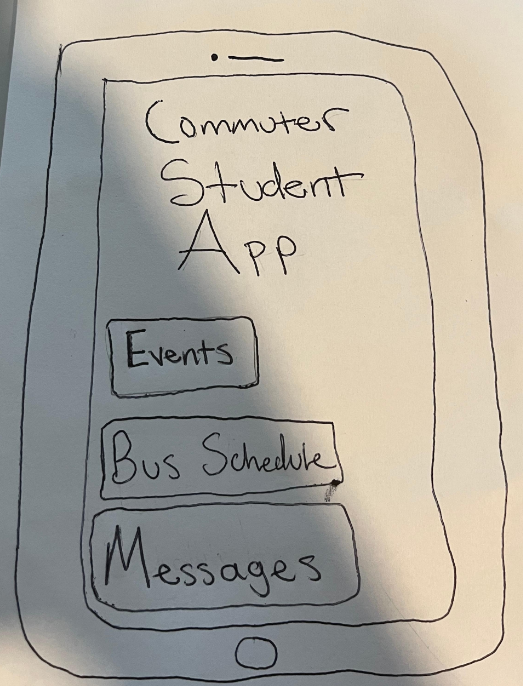 Commuter
Student
App
Events
Bus Schedule
Messages